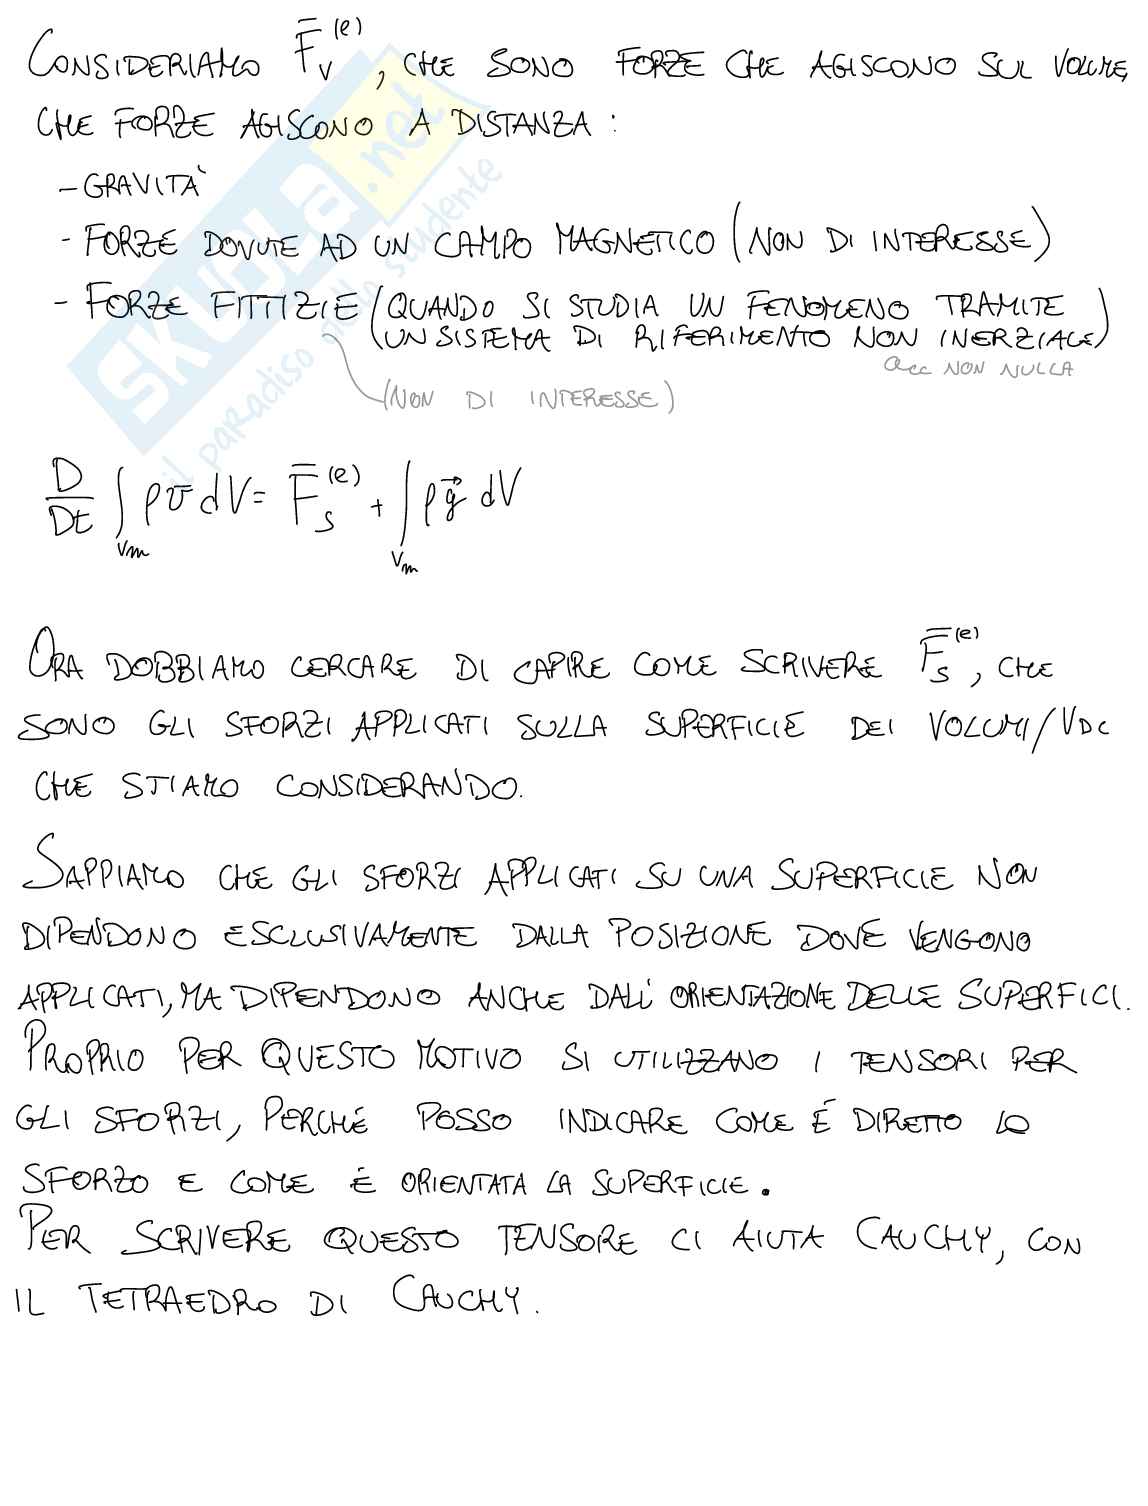 CONSIDERIAMO F̄_V^(e), CHE SONO FORZE CHE AGISCONO SUL VOLUME,
CHE FORZE AGISCONO A DISTANZA:
- GRAVITÀ
- FORZE DOVUTE AD UN CAMPO MAGNETICO (NON DI INTERESSE)
- FORZE FITTIZIE (QUANDO SI STUDIA UN FENOMENO TRAMITE
UN SISTEMA DI RIFERIMENTO NON INERZIALE)
acc NON NULLA
(NON DI INTERESSE)
D/Dt ∫_Vm ρ v̄ dV = F̄_S^(e) + ∫_Vm ρ g⃗ dV
ORA DOBBIAMO CERCARE DI CAPIRE COME SCRIVERE F̄_S^(e), CHE
SONO GLI SFORZI APPLICATI SULLA SUPERFICIE DEI VOLUMI/VDC
CHE STIAMO CONSIDERANDO.
SAPPIAMO CHE GLI SFORZI APPLICATI SU UNA SUPERFICIE NON
DIPENDONO ESCLUSIVAMENTE DALLA POSIZIONE DOVE VENGONO
APPLICATI, MA DIPENDONO ANCHE DALL'ORIENTAZIONE DELLE SUPERFICI.
PROPRIO PER QUESTO MOTIVO SI UTILIZZANO I TENSORI PER
GLI SFORZI, PERCHÉ POSSO INDICARE COME É DIRETTO LO
SFORZO E COME É ORIENTATA LA SUPERFICIE.
PER SCRIVERE QUESTO TENSORE CI AIUTA CAUCHY, CON
IL TETRAEDRO DI CAUCHY.
SKUOLA.net
il paradiso dello studente